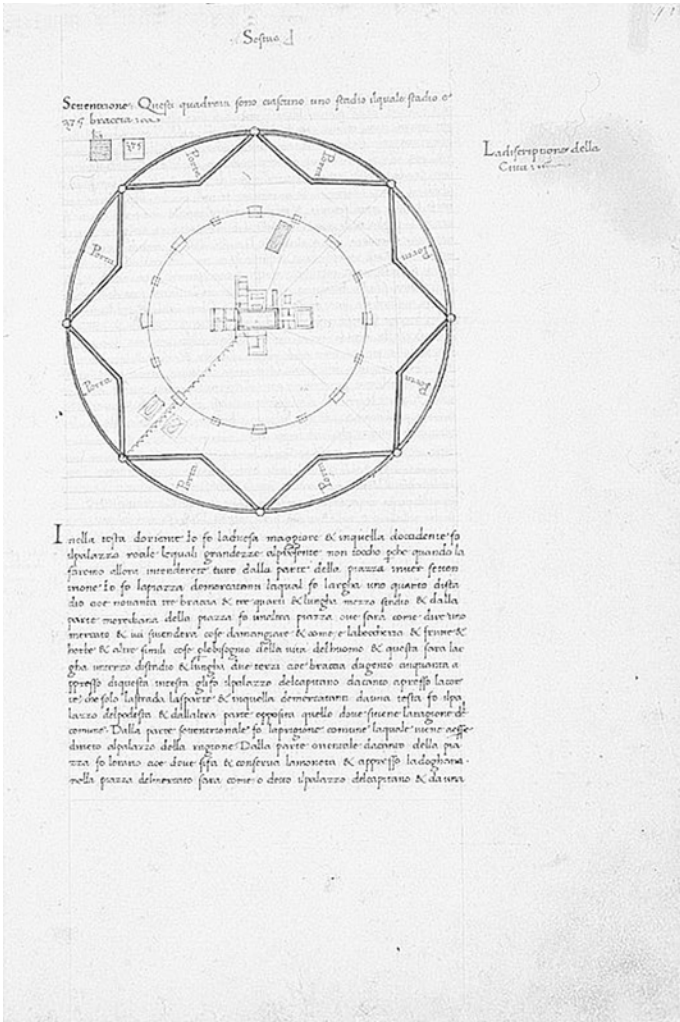 Sextus
Settentrione. Questi quadretti sono ciascuno uno stadio ilquale stadio e
375 braccia
Ladiscriptione della
Citta
375
Porta
Porta
Porta
Porta
Porta
Porta
Porta
Porta
Inella testa doriente Io fo lachiesa maggiore & inquella doccidente fo
ilpalazzo reale lequali grandezze alpresente non toccho pche quando la
faremo allora intenderete tutto dalla parte della piazza inuer setten
trione Io fo lapiazza demercatanti laqual fo largha uno quarto dista
dio cioe nouanta tre braccia & tre quarti & lungha mezzo stadio & dalla
parte merediana della piazza fo unaltra piazza oue sara come dire uno
mercato & iui siuendera cose damangiare & come e labeccheria & frutte &
herbe & altre simili cose plebisogno della uita delhuomo & questa sara lar
gha unterzo distadio & lungha due terzi cioe braccia dugento cinquanta a
ppresso diquesta intesta glifo ilpalazzo delcapitano dacanto apresso lacor
te che solo lastrada lasparte & inquella demercatanti dauna testa fo ilpa
lazzo delpodesta & dallaltra parte opposita quello doue sitiene laragione del
comune. Dalla parte settentrionale fo laprigione comune laquale uiene aesse
drieto alpalazzo della ragione. Dalla parte orientale dacanto della pia
zza fo lerario cioe doue sifa & conserua lamoneta & appresso ladoghana.
nella piazza delmercato sara come o detto ilpalazzo delcapitano & dauna